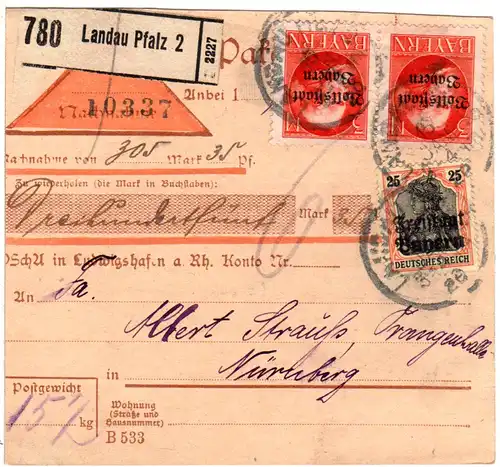 780 Landau Pfalz 2
2227
Pak
BAYERN BAYERN
Volksstaat Bayern Volksstaat Bayern
Anbei 1
10337
Nachnahme
Nachnahme von 305 Mark 35 Pf.
Zu wiederholen (die Mark in Buchstaben):
Dreihundertfünf Mark
25 25
Freistaat
Bayern
DEUTSCHES REICH
PSchA in Ludwigshafen a. Rh. Konto Nr.
An Fa.
Albert Strauss,
in Nürnberg
Postgewicht
15 1/2 kg
Wohnung
(Straße und
Hausnummer)
B 533